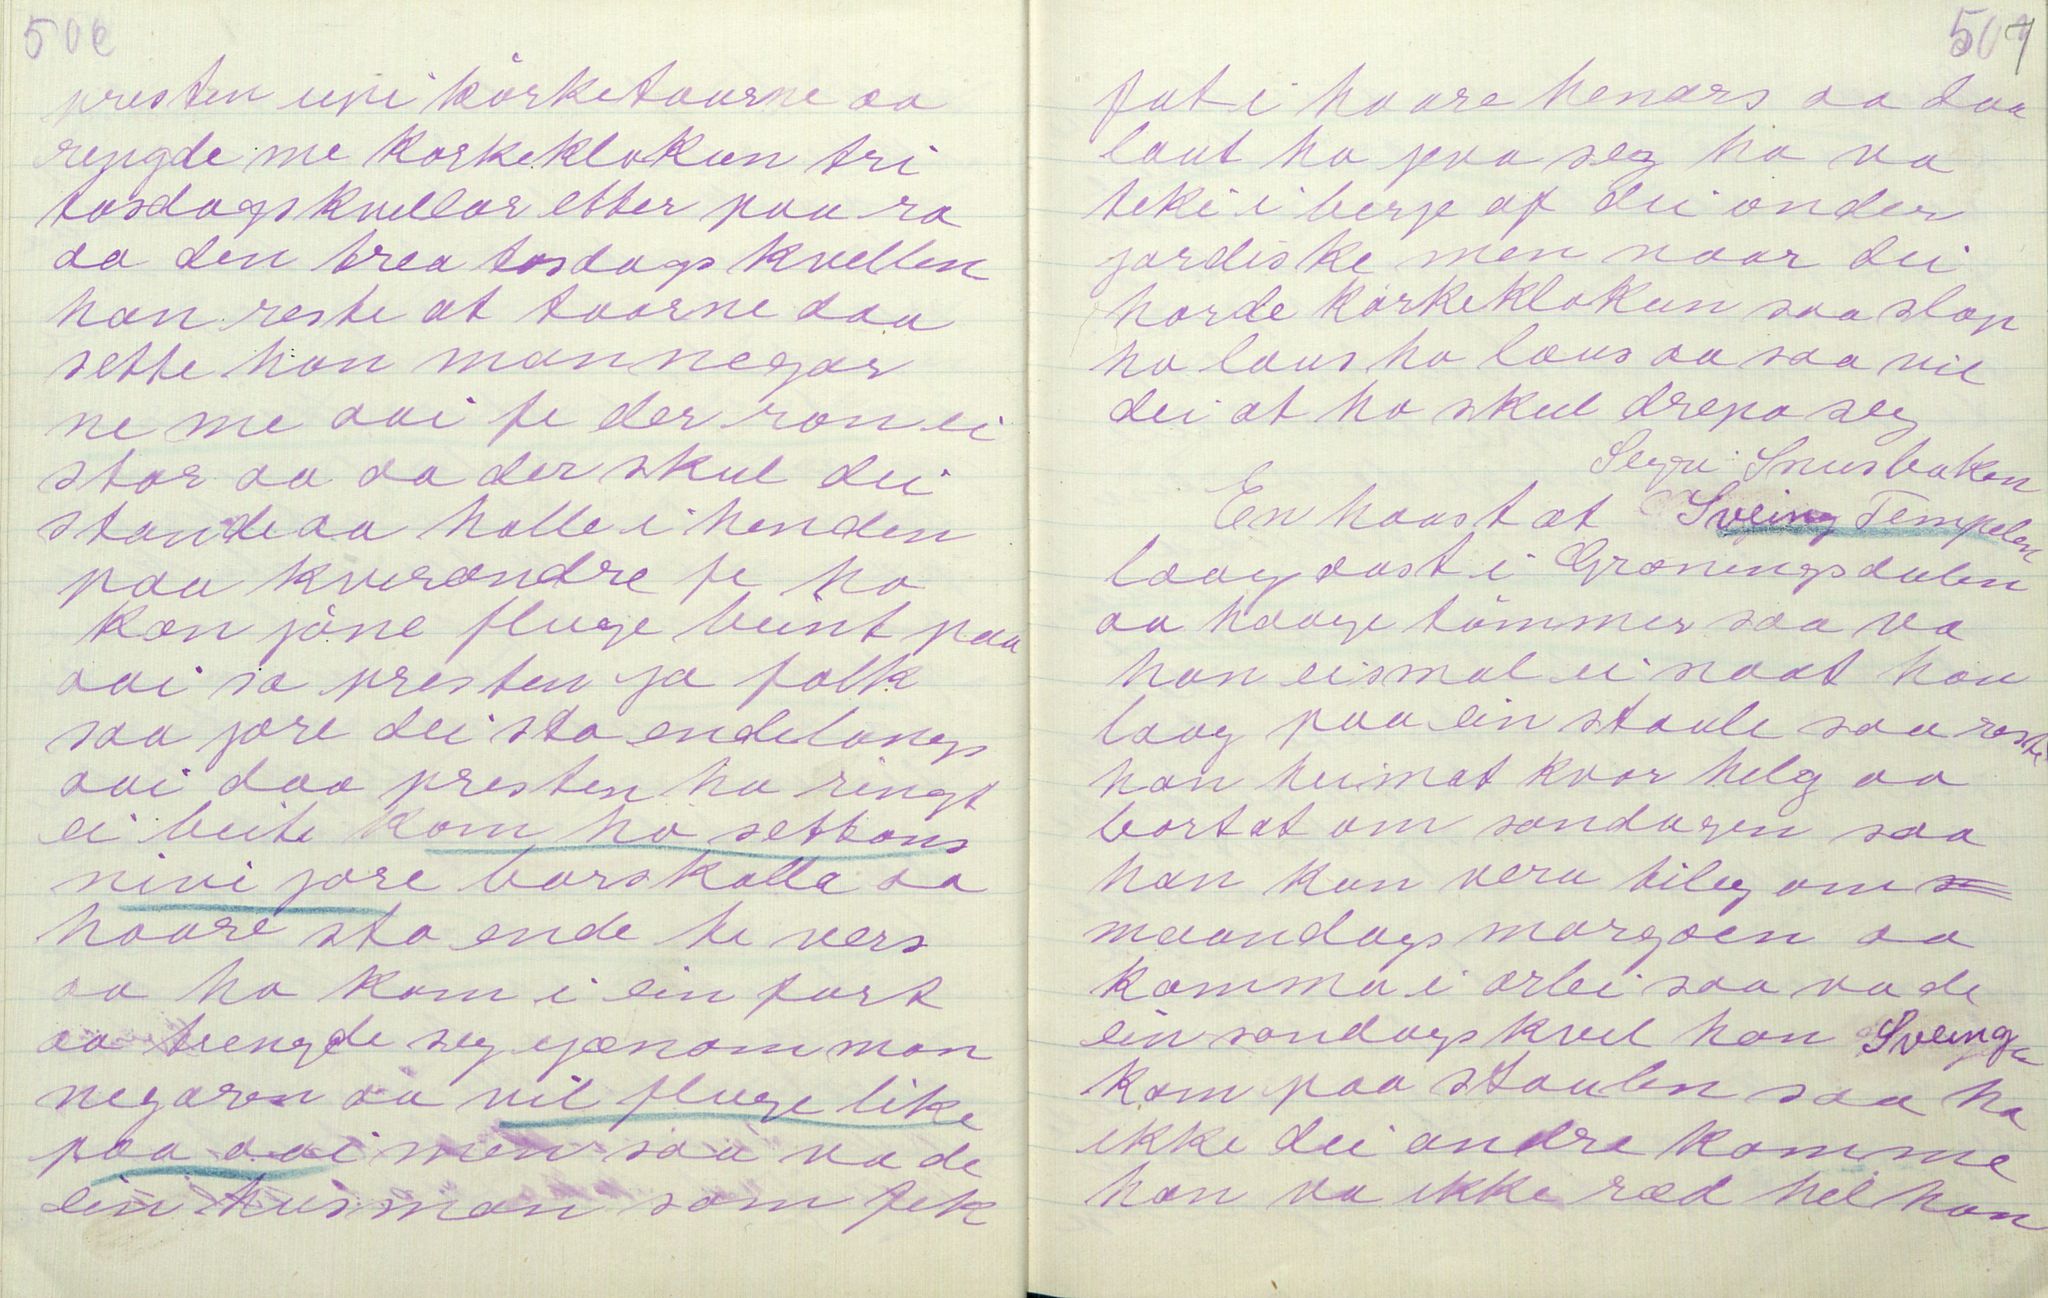 506
presten upi körketaarne aa
rengde me korkeklokun tri
tosdagskvellar etter paa ra
aa den trea tosdags kvellen
han reste at taarne daa
sette han mannegar
ne me aai fe der ron ei
stor aa aa der skul dei
stande aa halle i henden
paa kverandre fe ho
kan jöne fluge beint paa
aai sa presten ja folk
saa jore dei sta endelangs
aai daa presten ha ringt
ei beite kom ho settans
nivi jore barskalla aa
haare sto ende te vers
aa ho kom i ein fart
aa trengde seg gjenom man
negaren aa vil fluge like
paa aai men saa va de
ein husman som fek
507
fat i haare henars aa daa
laut ho gva seg ho va
teki i berge af dei onder
jordiske men naar dei
horde körkeklokun saa slap
ho laus ho laus aa saa vil
dei at ho skul drepa seg
Segu Snusbaken
En haast at Sveing Tempelen
laag aust i Groningsdalen
aa haage tömmer saa va
han eismal ei naat han
laag paa ein staule saa reste
han heimat kvar helg aa
bortat om sondagen saa
han kan vera tileg om
maandags margoen aa
komma i arbei saa va de
ein sondagskvel han Sveing
kom paa staulen saa ha
ikke dei andre komme
han va ikke ræd hel han